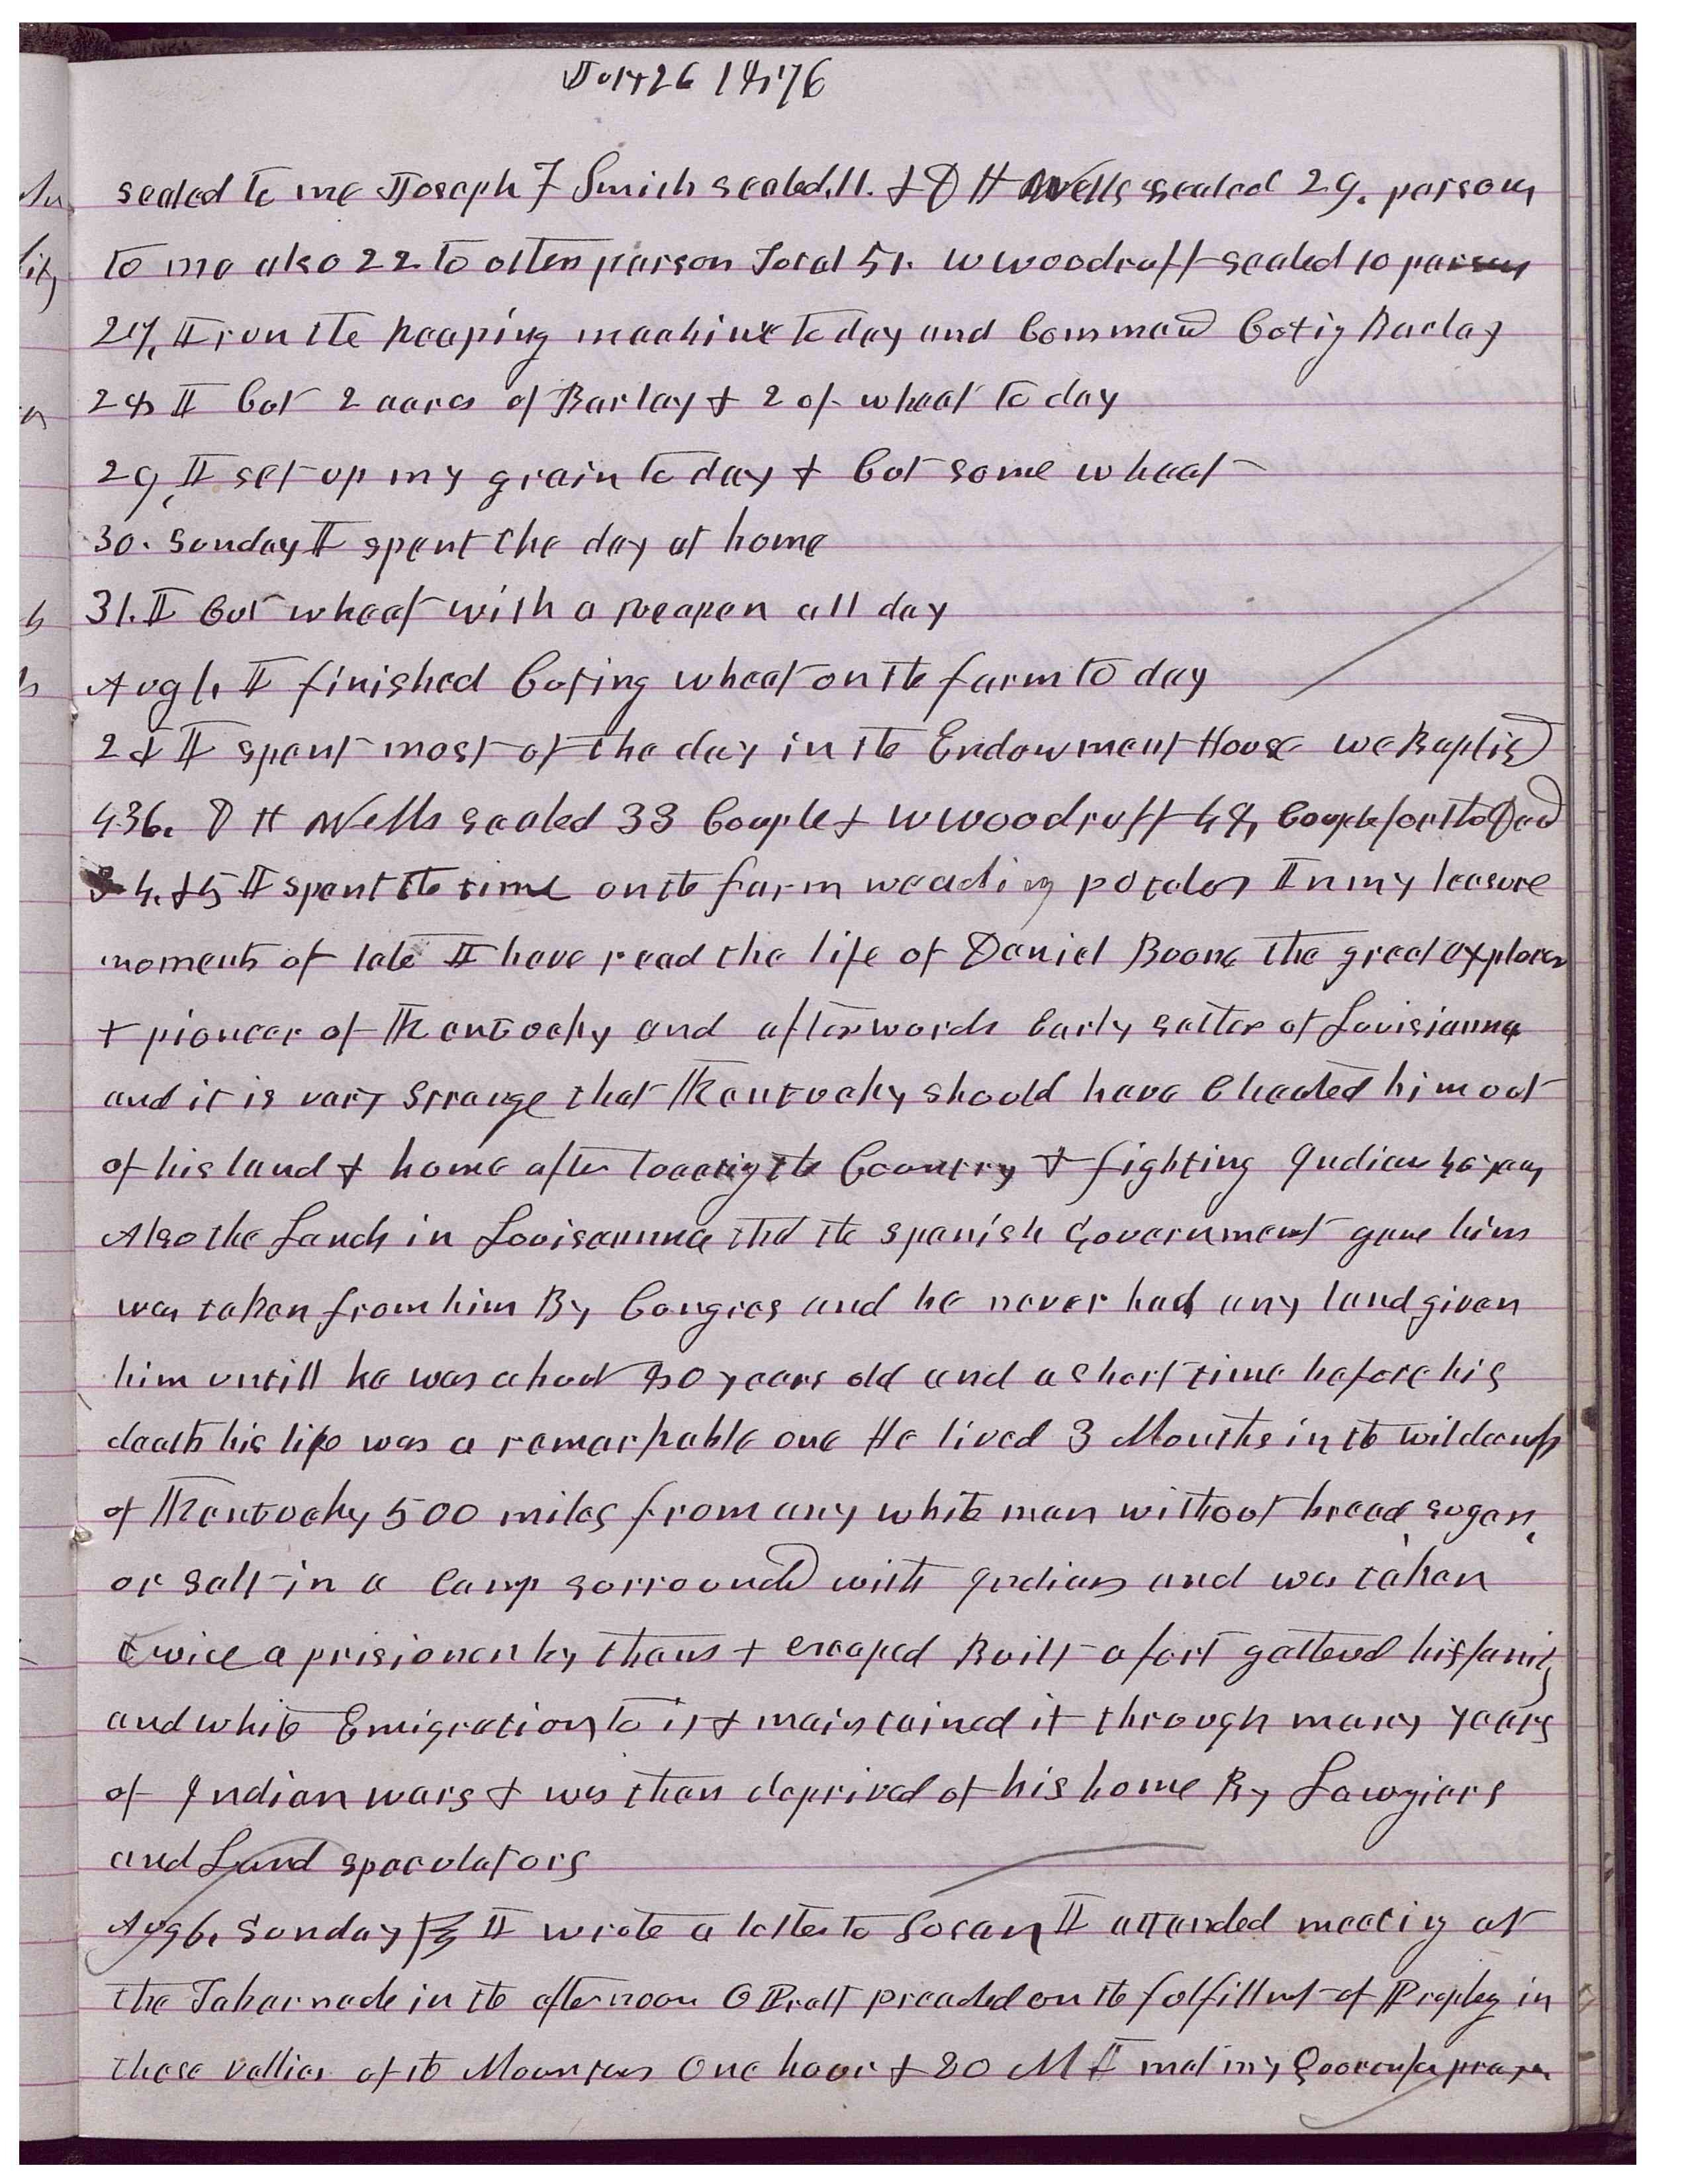 July 26 1876
sealed to me Joseph F Smith sealed 11. & D H Wells sealed 29. persons
to me also 22 to other person Total 51. W Woodruff sealed 10 persons
27, I run the Reaping machine to day and Commencd Cuting Barley
28 I Cut 2 acres of Barley & 2 of wheat to day
29, I set up my grain to day & Cut some wheat
30. Sunday I spent the day at home
31. I Cut wheat with a Reaper all day
Aug 1, I finished Cuting wheat on the farm to day
2d I spent most of the day in the Endowment House we Baptized
436. D H Wells sealed 33 Couple & W Woodruff 48, Couple for the Dead
3 4. & 5 I spent the time on the farm weeding potatoes In my leasure
moments of late I have read the life of Daniel Boone the great explorer
& pioneer of Kentucky and afterwords Early settler of Louisianna
and it is vary strange that Kentucky should have Cheated him out
of his land & home after locating the Country & fighting Indians 40 years
Also the Lands in Louiseanna that the Spanish Government gave him
was taken from him By Congress and he never had any land given
him untill he was about 80 years old and a short time before his
death his life was a remarkable one He lived 3 Months in the wilderness
of Kentucky 500 miles from any white man without bread, sugar,
or salt in a Camp sorrounded with Indians and was taken
twice a prisioner by them & escaped Built a fort gathered his family
and white Emigration to it & maintained it through many years
of Indian wars & was then deprived of his home By Lawyiers
and Land speculators
Aug 6, Sunday I wrote a letter to Susan I attended meeting at
the Tabernacle in the afternoon O Pratt preached on the fulfillment of Prophecy in
these vallies of the Mountains One hour & 20 M I met my Quorum for prayer